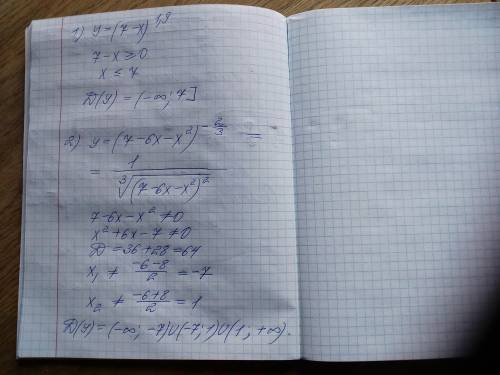 1) y = (7-x)^1,9
7-x ≥ 0
x ≤ 7
D(y) = (-∞; 7]
2) y = (7-6x-x²)^(-2/3) =
= 1/∛((7-6x-x²)²)
7-6x-x² ≠ 0
x²+6x-7 ≠ 0
D = 36+28 = 64
x₁ ≠ (-6-8)/2 = -7
x₂ ≠ (-6+8)/2 = 1
D(y) = (-∞; -7)∪(-7; 1)∪(1; +∞).